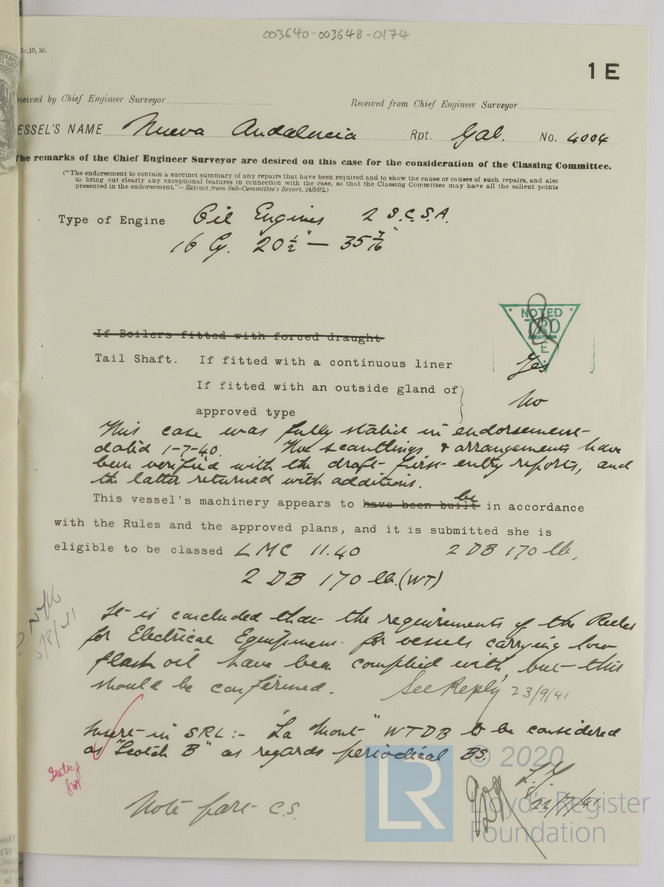 003640-003648-0174
1 E
eived by Chief Engineer Surveyor
Received from Chief Engineer Surveyor
ESSEL'S NAME Nueva Andalucia Rpt. Gal. No. 4004
The remarks of the Chief Engineer Surveyor are desired on this case for the consideration of the Classing Committee.
("The endorsement to contain a succinct summary of any repairs that have been required and to show the cause or causes of such repairs, and also
to bring out clearly any exceptional features in connection with the case, so that the Classing Committee may have all the salient points
presented in the endorsement."—Extract from Sub-Committee's Report,
Type of Engine Oil Engines 2 S.C.S.A.
16 Cy. 20½" — 35 7/16"
NOTED
If Boilers fitted with forced draught
Tail Shaft. If fitted with a continuous liner Yes
If fitted with an outside gland of
approved type No
This case was fully stated in endorsement
dated 1-7-40. The scantlings & arrangements have
been verified with the draft first entry reports, and
the latter returned with additions.
This vessel's machinery appears to have been built be in accordance
with the Rules and the approved plans, and it is submitted she is
eligible to be classed LMC 11.40 2 DB 170 lb.
2 DB 170 lb. (WT)
It is concluded that the requirements of the Rules
for Electrical Equipment for vessels carrying low
flash oil have been complied with, but this
should be confirmed. See Reply 23/9/41
Insert in SRL:- "La Mont" WTDB to be considered
as "Scotch B" as regards periodical BS.
Note pars C.S.
© 2020
LR
Lloyd's Register
Foundation